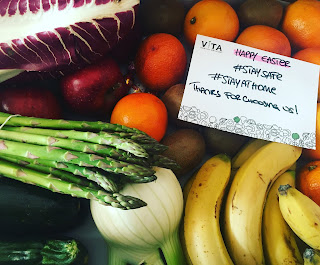 VITA
HAPPY EASTER
#STAYSAFE
#STAYATHOME
THANKS FOR CHOOSING US!